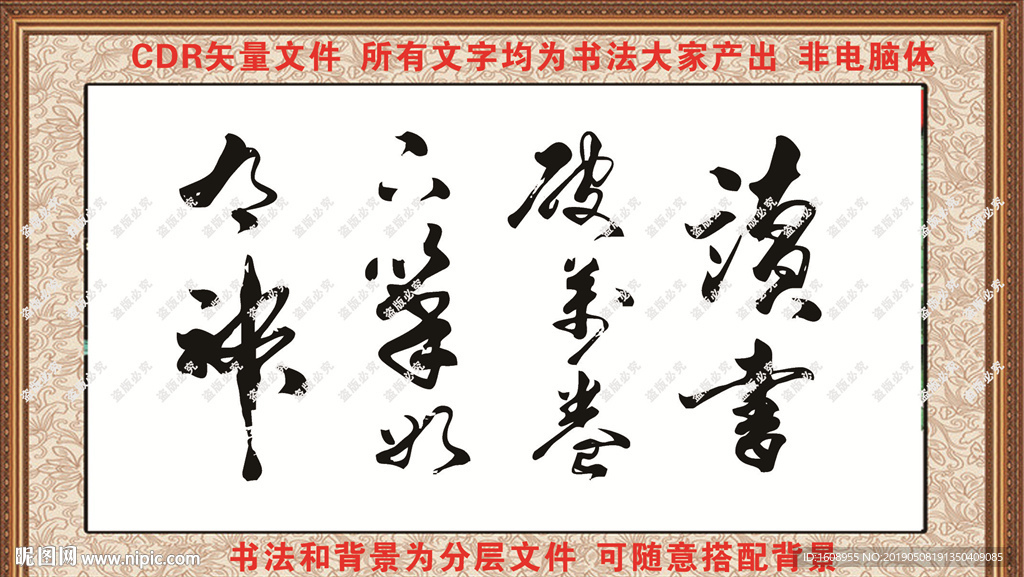 CDR矢量文件 所有文字均为书法大家产出 非电脑体
讀書
破萬卷
下筆如
有神
书法和背景为分层文件 可随意搭配背景
昵图网 www.nipic.com
ID:1608955 NO:20190508191350409085
盗版必究